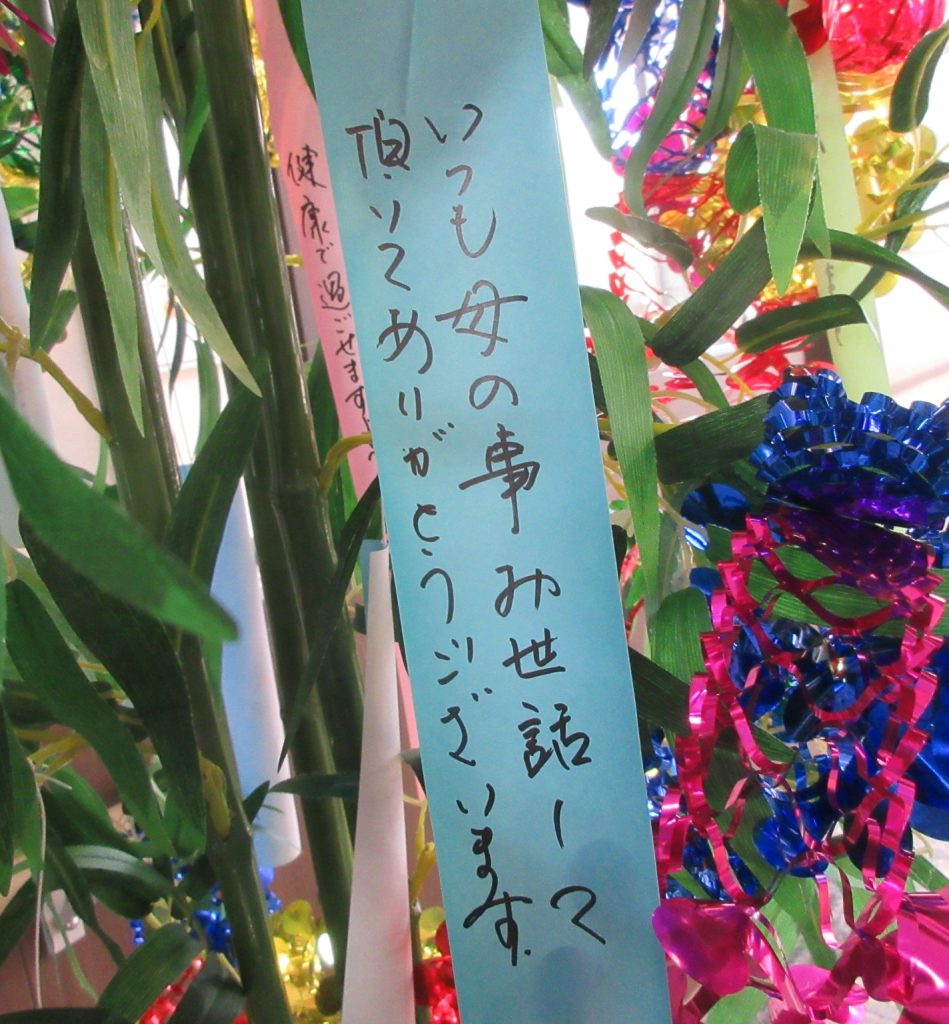 いつも母の事お世話して
頂いてありがとうございます
健康で過ごせます